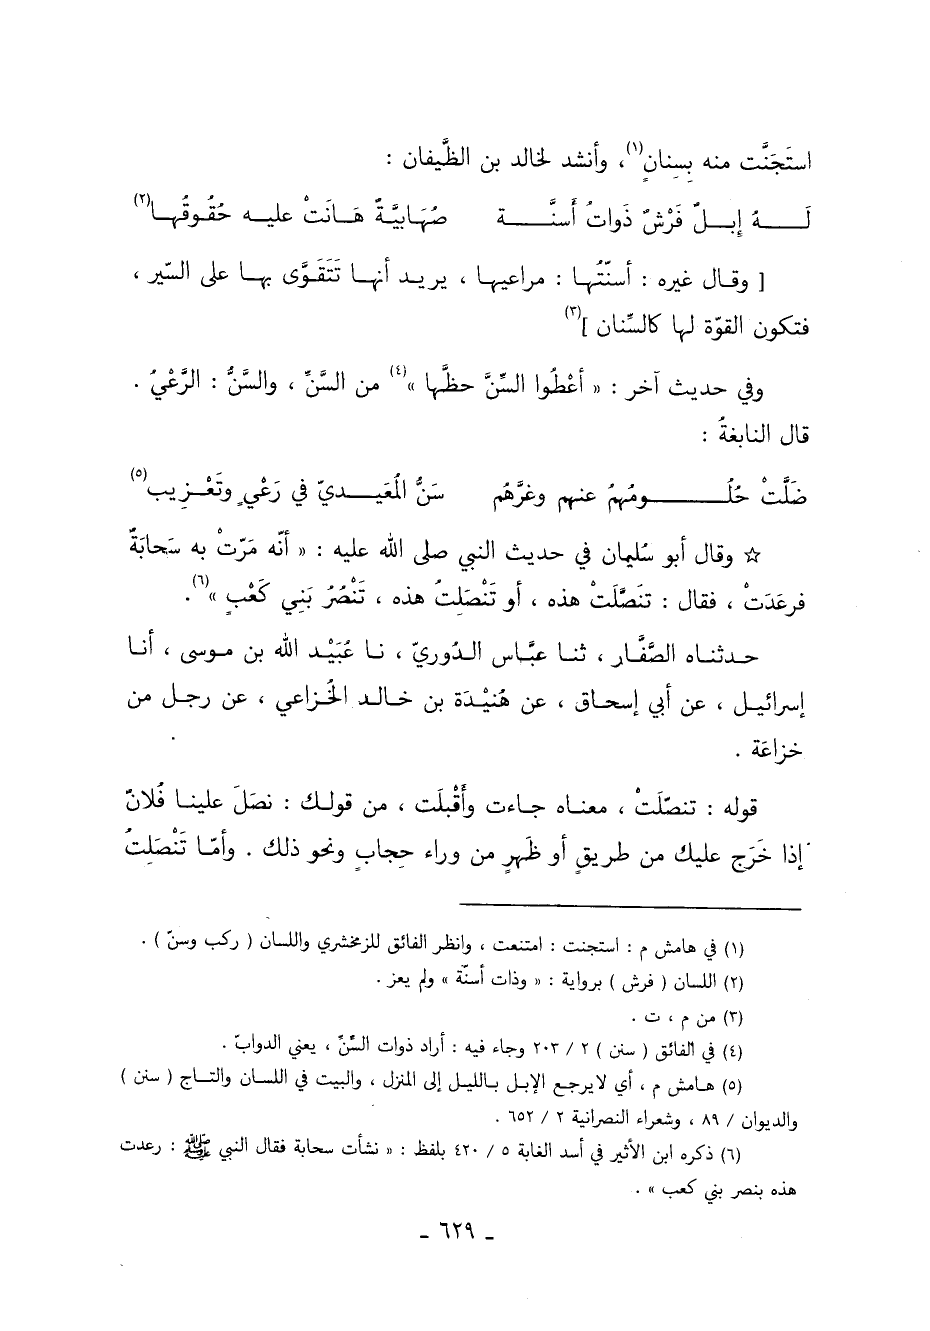 استَجَنَّت منه بِسنانٍ(١)، وأنشد لخالد بن الظَّيفان :
لَـــهُ إبـلٌ فَرْشٌ ذَواتُ أسنَّـــة     صُهَابيَّةٌ هَانَتْ عليـه حُقُوقُهـا(٢)
[ وقـال غيره : أسنّتُهـا : مراعيهـا ، يريـد أنهـا تَتَقَوَّى بهـا على السّير ،
فتكون القوّة لها كالسِّنان ](٣)
وفي حديث آخر : « أعْطُوا السِّنَّ حظَّها »(٤) من السَّنِّ ، والسَّنُّ : الرَّعْيُ .
قال النابغةُ :
ضَلَّتْ حُلُـــومُهمُ عنهم وغرَّهُم     سَنُّ المُعَيـديّ في رَعْيٍ وتَعْـزيب(٥)
☆ وقال أبو سُليمان في حديث النبي صلى الله عليه : « أنّه مَرّتْ به سَحابَةٌ
فرعَدَتْ ، فقال : تنَصَّلَتْ هذه ، أو تَنْصَلِتُ هذه ، تَنْصُرُ بَنِي كَعْبٍ »(٦).
حدثناه الصَّفَّار ، ثنا عبَّاس الدُوريّ ، نا عُبَيْد الله بن موسى ، أنا
إسرائيل ، عن أبي إسحاق ، عن هُنيْدَة بن خالد الخُزاعي ، عن رجل من
خزاعَة .
قوله : تنصّلَتْ ، معناه جاءت وأَقْبلَت ، من قولك : نصَلَ علينا فُلانٌ
إذا خَرَج عليك من طريقٍ أو ظَهرٍ من وراء حجابٍ ونحو ذلك . وأمّا تَنْصَلِتُ
(١) في هامش م : استجنت : امتنعت ، وانظر الفائق للزمخشري واللسان ( ركب وسنّ ) .
(٢) اللسان ( فرش ) برواية : « وذات أسنّة » ولم يعز .
(٣) من م ، ت .
(٤) في الفائق ( سنن ) ٢ / ٢٠٣ وجاء فيه : أراد ذوات السِّنّ ، يعني الدوابّ .
(٥) هامش م ، أي لايرجع الإبل بالليل إلى المنزل ، والبيت في اللسان والتاج ( سنن )
والديوان / ٨٩ ، وشعراء النصرانية ٢ / ٦٥٢ .
(٦) ذكره ابن الأثير في أسد الغابة ٥ / ٤٢٠ بلفظ : « نشأت سحابة فقال النبي ﷺ : رعدت
هذه بنصر بني كعب » .
ـ ٦٢٩ ـ